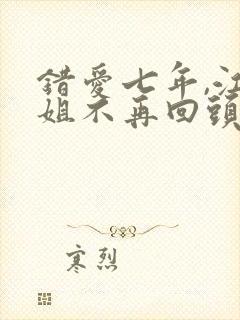 錯愛七年,江
姐不再回頭
寒烈